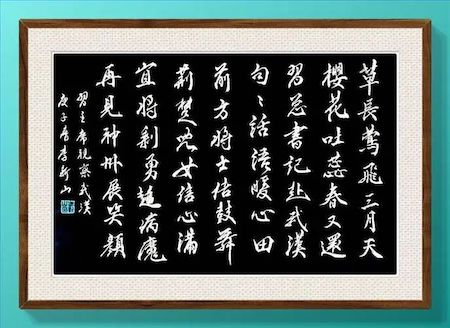 草長鶯飛三月天
櫻花吐蕊春又還
習总書記赴武漢
句〻話語暖心田
前方將士倍鼓舞
荆楚児女信心滿
宜將剩勇追病魔
再見神州展笑顏
習主席視察武漢
庚子春李新山